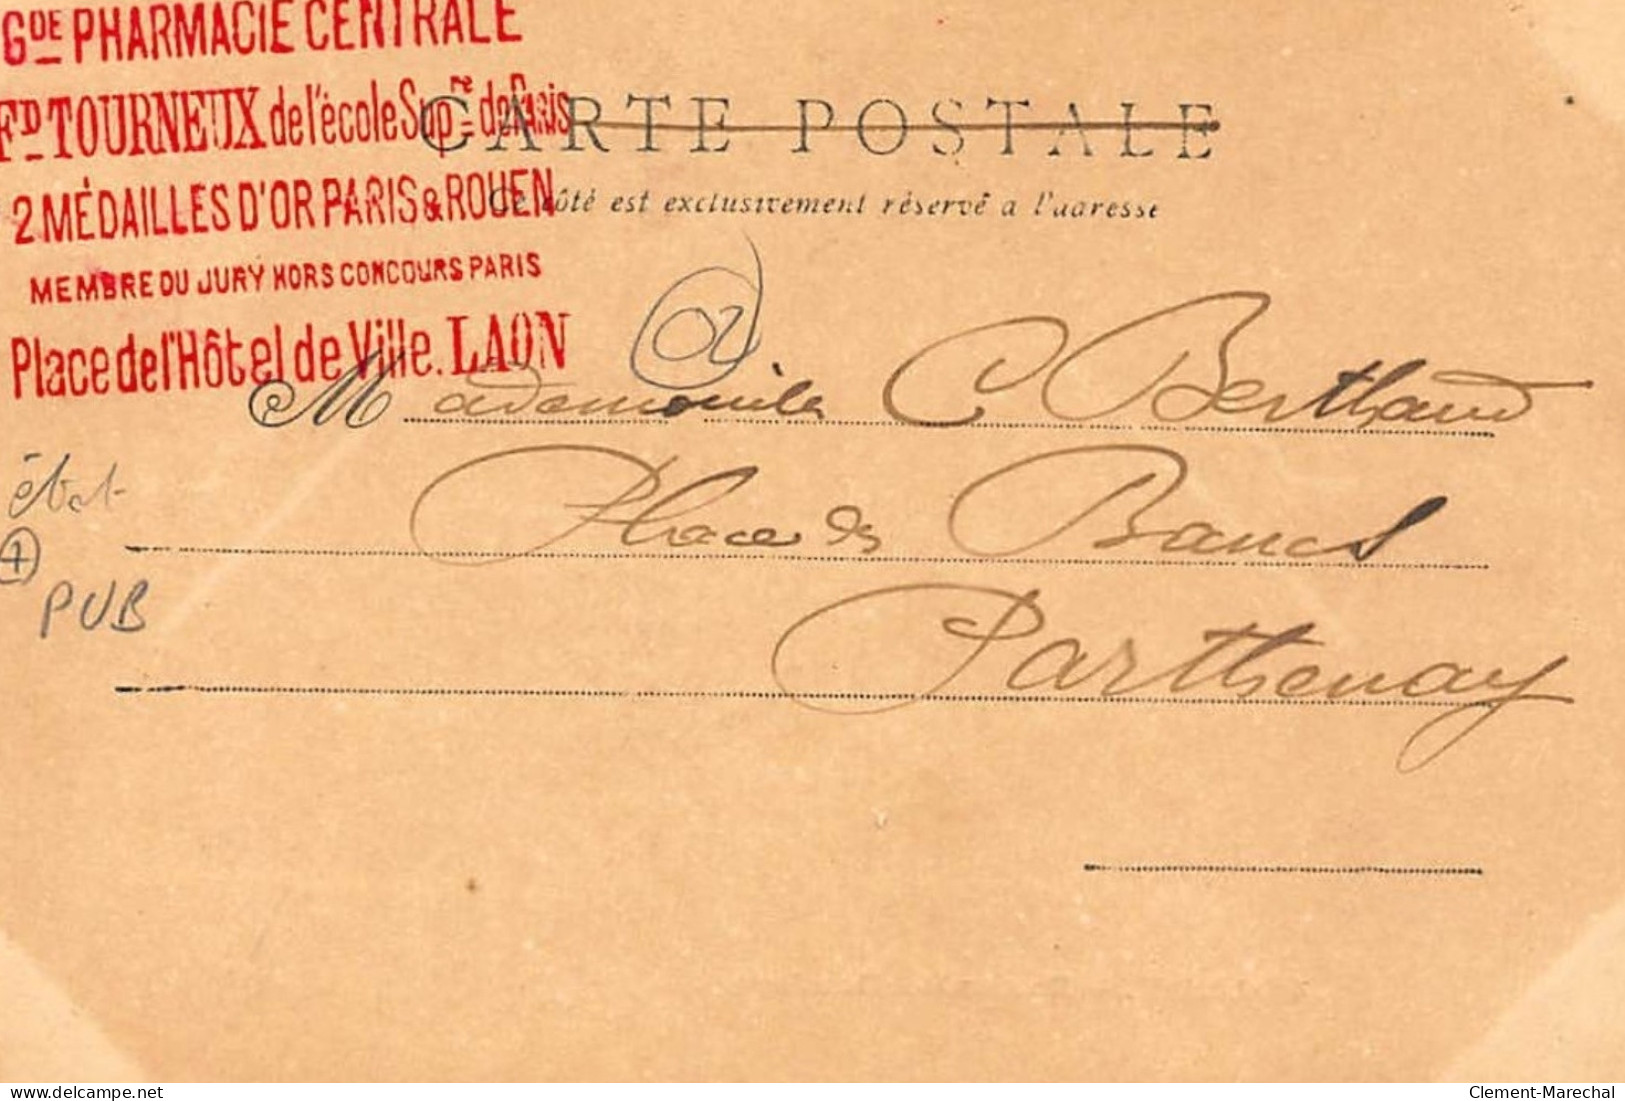 Gde PHARMACIE CENTRALE
Fd TOURNEUX de l'école Supre de PARIS
2 MÉDAILLES D'OR PARIS & ROUEN
MEMBRE DU JURY HORS CONCOURS PARIS
Place de l'Hôtel de Ville. LAON
CARTE POSTALE
Ce côté est exclusivement réservé a l'adresse
02
Mademoiselle C Berthaud
Place des Bancs
Parthenay
état
PUB
delcampe.net
Clement-Marechal